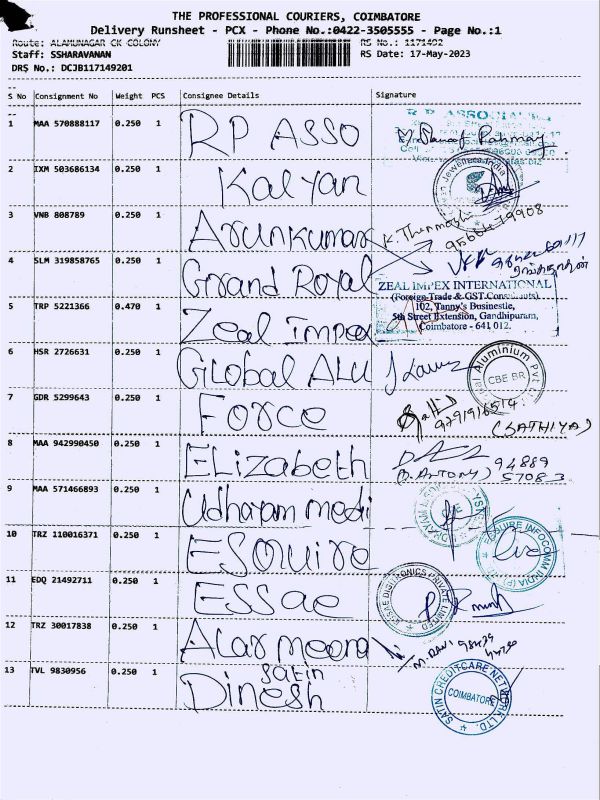 THE PROFESSIONAL COURIERS, COIMBATORE
Delivery Runsheet - PCX - Phone No.:0422-3505555 - Page No.:1
Route: ALAMUNAGAR CK COLONY RS No.: 1171492
Staff: SSHARAVANAN RS Date: 17-May-2023
DRS No.: DCJB117149201
S No Consignment No Weight PCS Consignee Details Signature
1 MAA 570888117 0.250 1 RP ASSO
2 IXM 503686134 0.250 1 Kalyan
3 VNB 808789 0.250 1 Arunkumar
4 SLM 319858765 0.250 1 Grand Royal
ZEAL IMPEX INTERNATIONAL
(Foreign Trade & GST Consultants)
102, Tanny's Businestle,
5th Street Extension, Gandhipuram,
Coimbatore - 641 012.
5 TRP 5221366 0.470 1 Zeal Impex
6 HSR 2726631 0.250 1 Global ALU
Aluminium Pvt
CBE BR
7 GDR 5299643 0.250 1 Force
(SATHIYA)
8 MAA 942990450 0.250 1 Elizabeth
(D. ANTONY) 94889
57083
9 MAA 571466893 0.250 1 Udhayam medi
10 TRZ 110016371 0.250 1 ESQUIRE
ESQUIRE INFOCOMM INDIA (P)
11 EDQ 21492711 0.250 1 ESSae
12 TRZ 30017838 0.250 1 Alar meena
13 TVL 9830956 0.250 1 Satin
Dinesh
SATIN CREDITCARE NETWORK LTD.
COIMBATORE